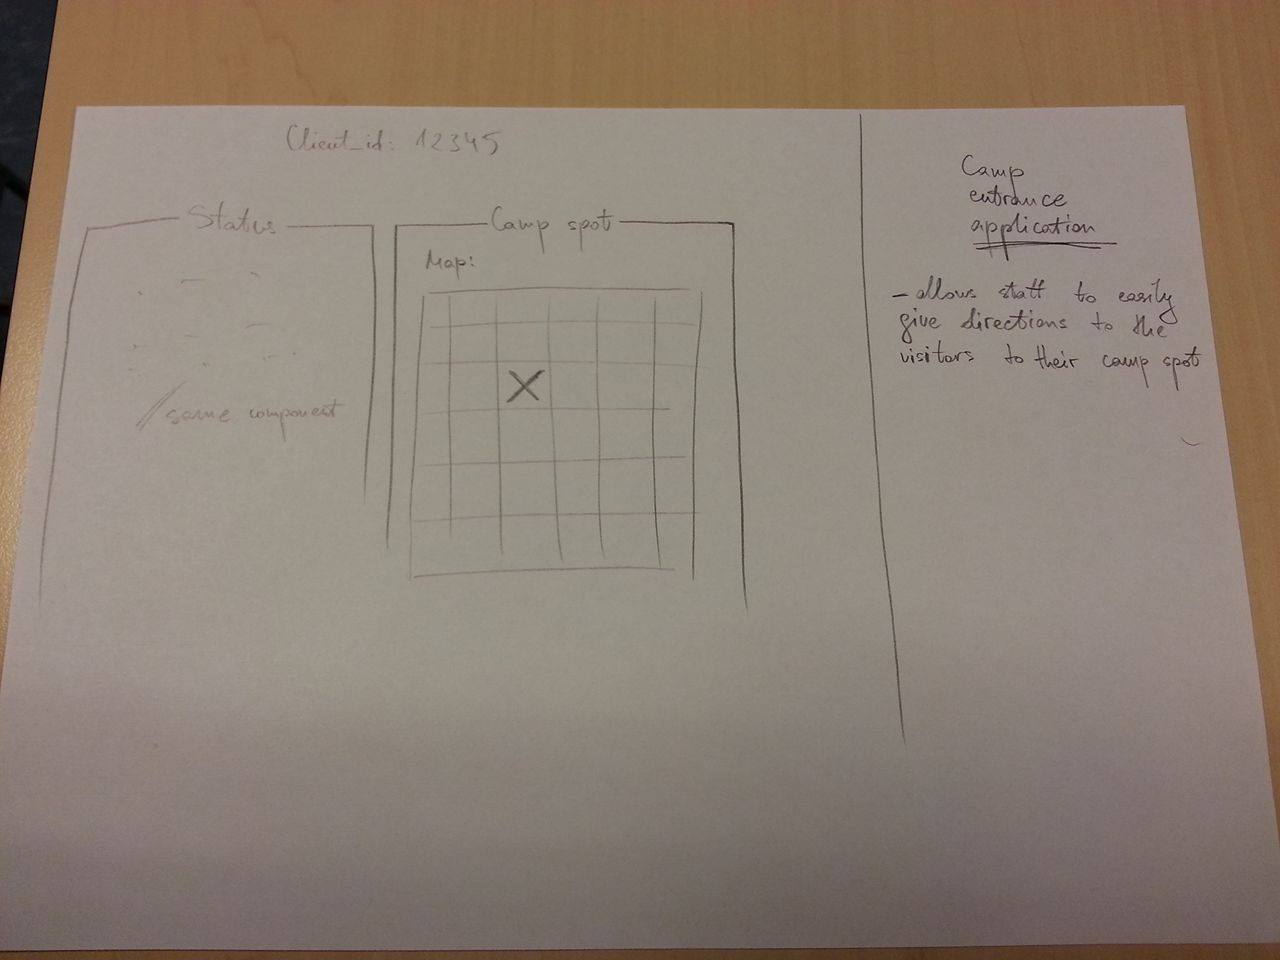 Client_id: 12345
Status
// same component
Camp spot
Map:
X
Camp
entrance
application
- allows staff to easily
give directions to the
visitors to their camp spot